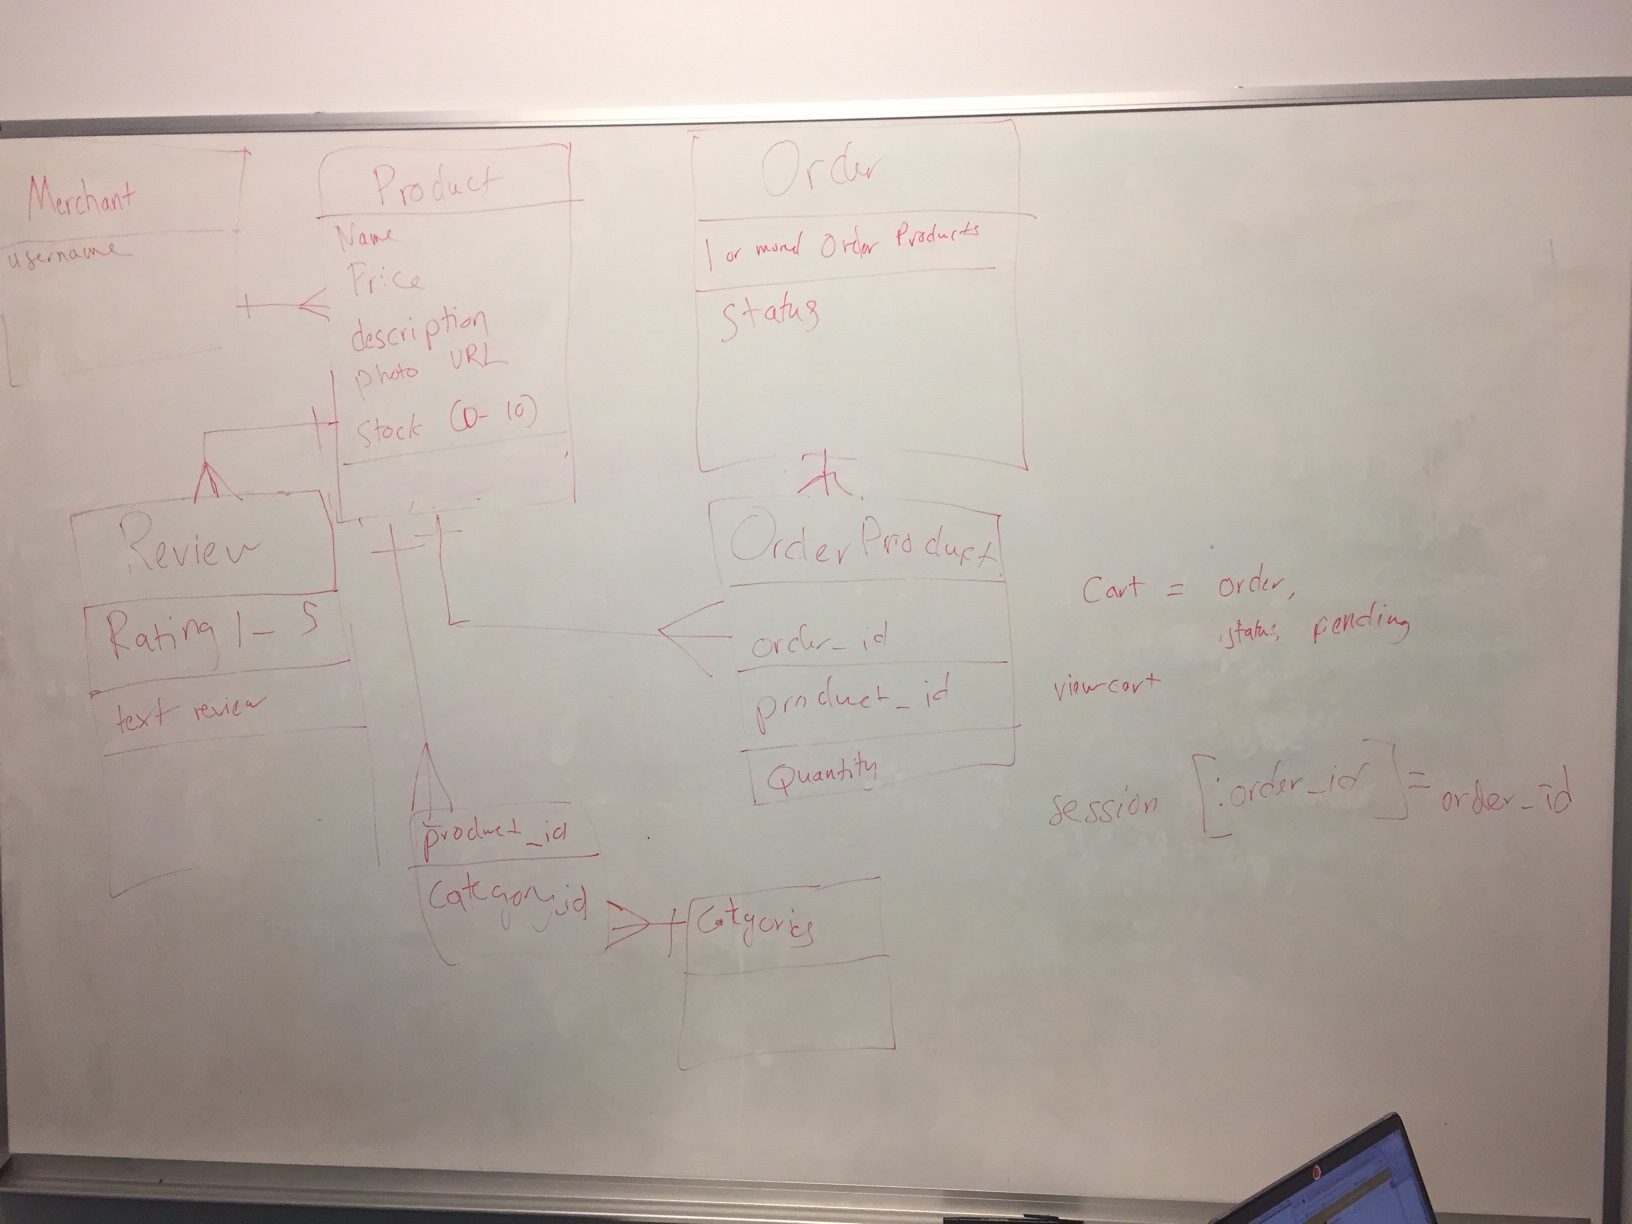 Merchant
username
Product
Name
Price
description
photo URL
Stock (0-10)
Order
1 or mored Order Products
Status
Review
Rating 1-5
text review
OrderProduct
order_id
product_id
Quantity
product_id
Category_id
Catgories
Cart = order,
status, pending
view cart
session [:order_id] = order_id